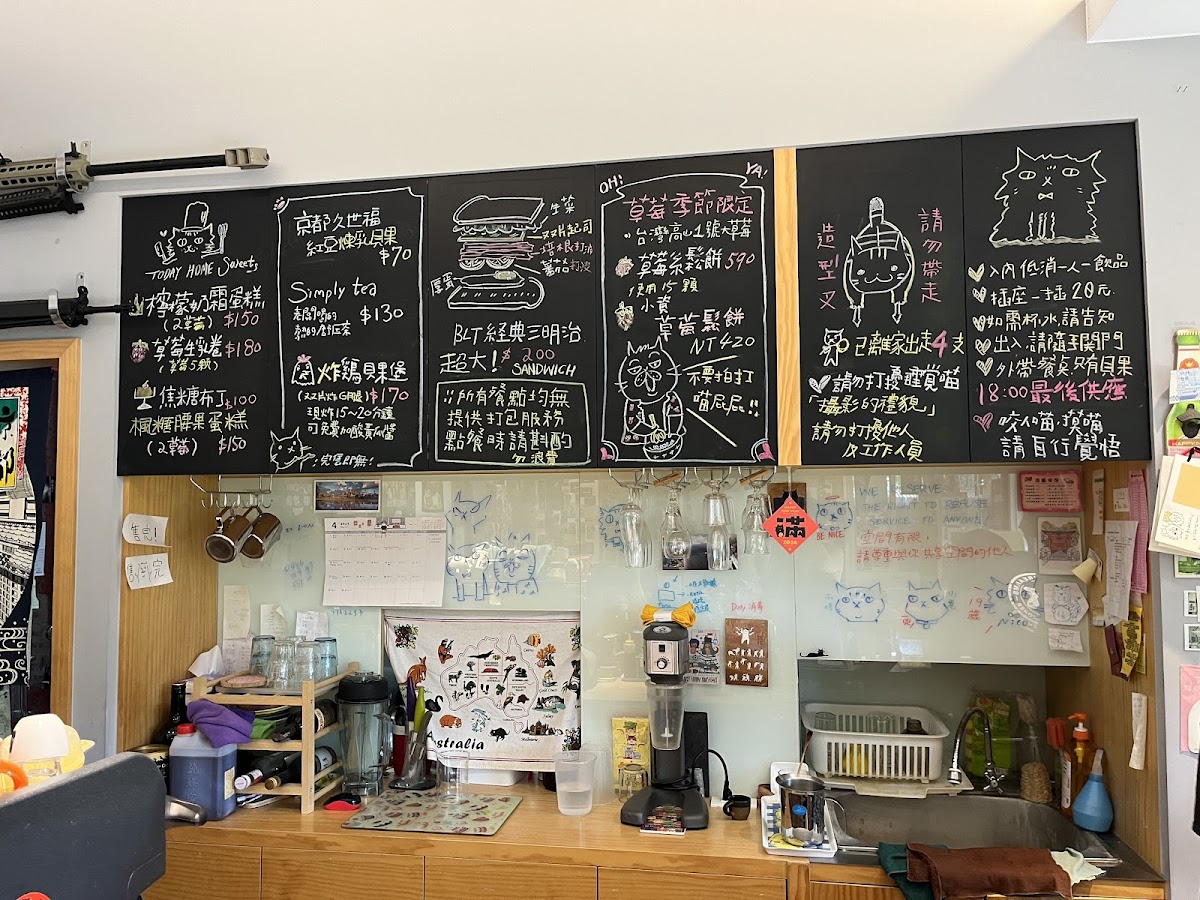 TODAY HOME Sweets
檸檬奶霜蛋糕
(2草莓) $150
草莓生乳卷 $180
(草莓5顆)
焦糖布丁 $100
楓糖腰果蛋糕
(2草莓) $150
京都久世福
紅豆煉乳貝果
$70
Simply tea
$130
炸鷄貝果堡
$170
現炸15~20分鐘
可免費加酸黃瓜醬
!完售即無!
生菜
双片起司
培根打折
蕃茄打沒
厚蛋
BLT 經典三明治
超大! $200
SANDWICH
所有餐點均無
提供打包服務
點餐時請斟酌
勿浪費
OH!
YA!
草莓季節限定
台灣高山1號大草莓
草莓系鬆餅 590
使用15顆
小資
草莓鬆餅
NT 420
不要拍打
喵屁屁
請勿帶走
造型叉
已離家出走4支
請勿打擾睡覺喵
「攝影的禮貌」
請勿打擾他人
及工作人員
入內低消一人一飲品
插座一插20元
如需杯水,請告知
出入,請隨手關門
外帶餐桌只有貝果
18:00最後供應
咬人喵.瘋喵
請自行覺悟
售完!
WE RESERVE
THE RIGHT TO REFUSE
SERVICE TO ANYONE
空間有限,
請尊重與你共享空間的他人
BE NICE
滿
4
Australia
Duty 消毒
19歲